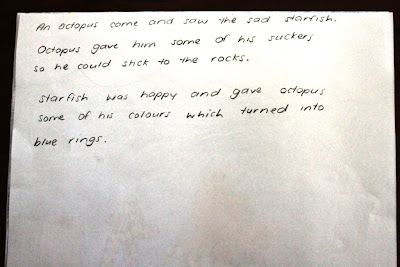 An octopus came and saw the sad starfish.
Octopus gave him some of his suckers
so he could stick to the rocks.
starfish was happy and gave octopus
some of his colours which turned into
blue rings.